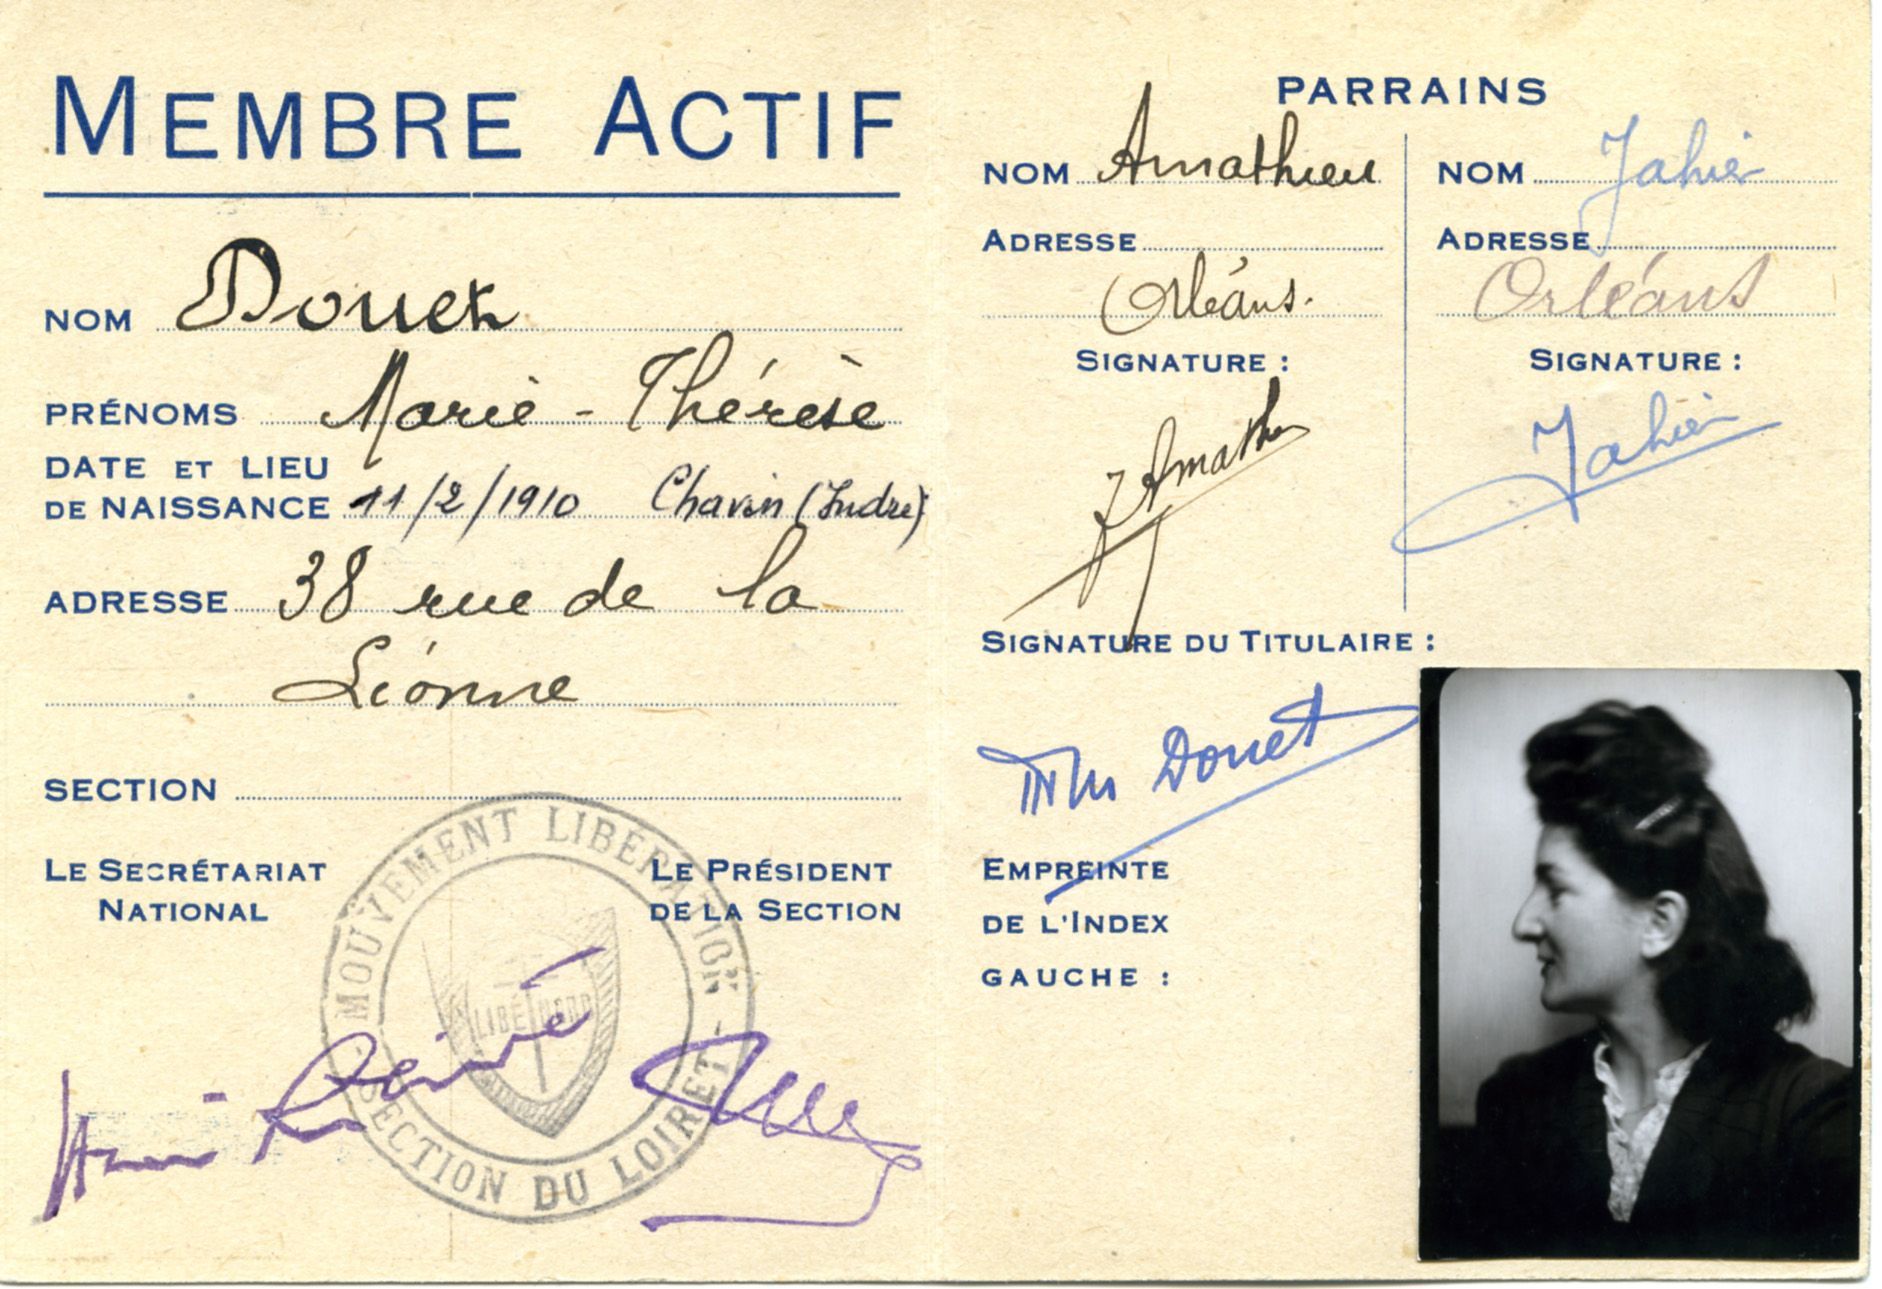 MEMBRE ACTIF
NOM Douet
PRÉNOMS Marie-Thérèse
DATE ET LIEU
DE NAISSANCE 11/2/1910 Chavin (Indre)
ADRESSE 38 rue de la
Lionne
SECTION
LE SECRÉTARIAT
NATIONAL
LE PRÉSIDENT
DE LA SECTION
MOUVEMENT LIBÉRATION
LIBÉ NORD
- SECTION DU LOIRET -
PARRAINS
NOM Amathieu
ADRESSE
Orléans.
SIGNATURE :
J Amathieu
NOM Jahier
ADRESSE
Orléans
SIGNATURE :
Jahier
SIGNATURE DU TITULAIRE :
Douet
EMPREINTE
DE L'INDEX
GAUCHE :